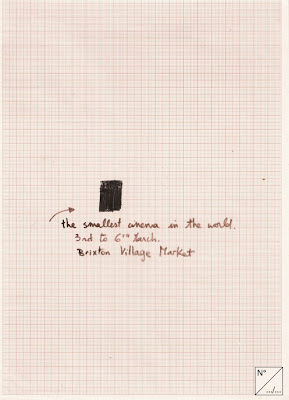 the smallest cinema in the world.
3rd to 6th March.
Brixton Village Market
N°